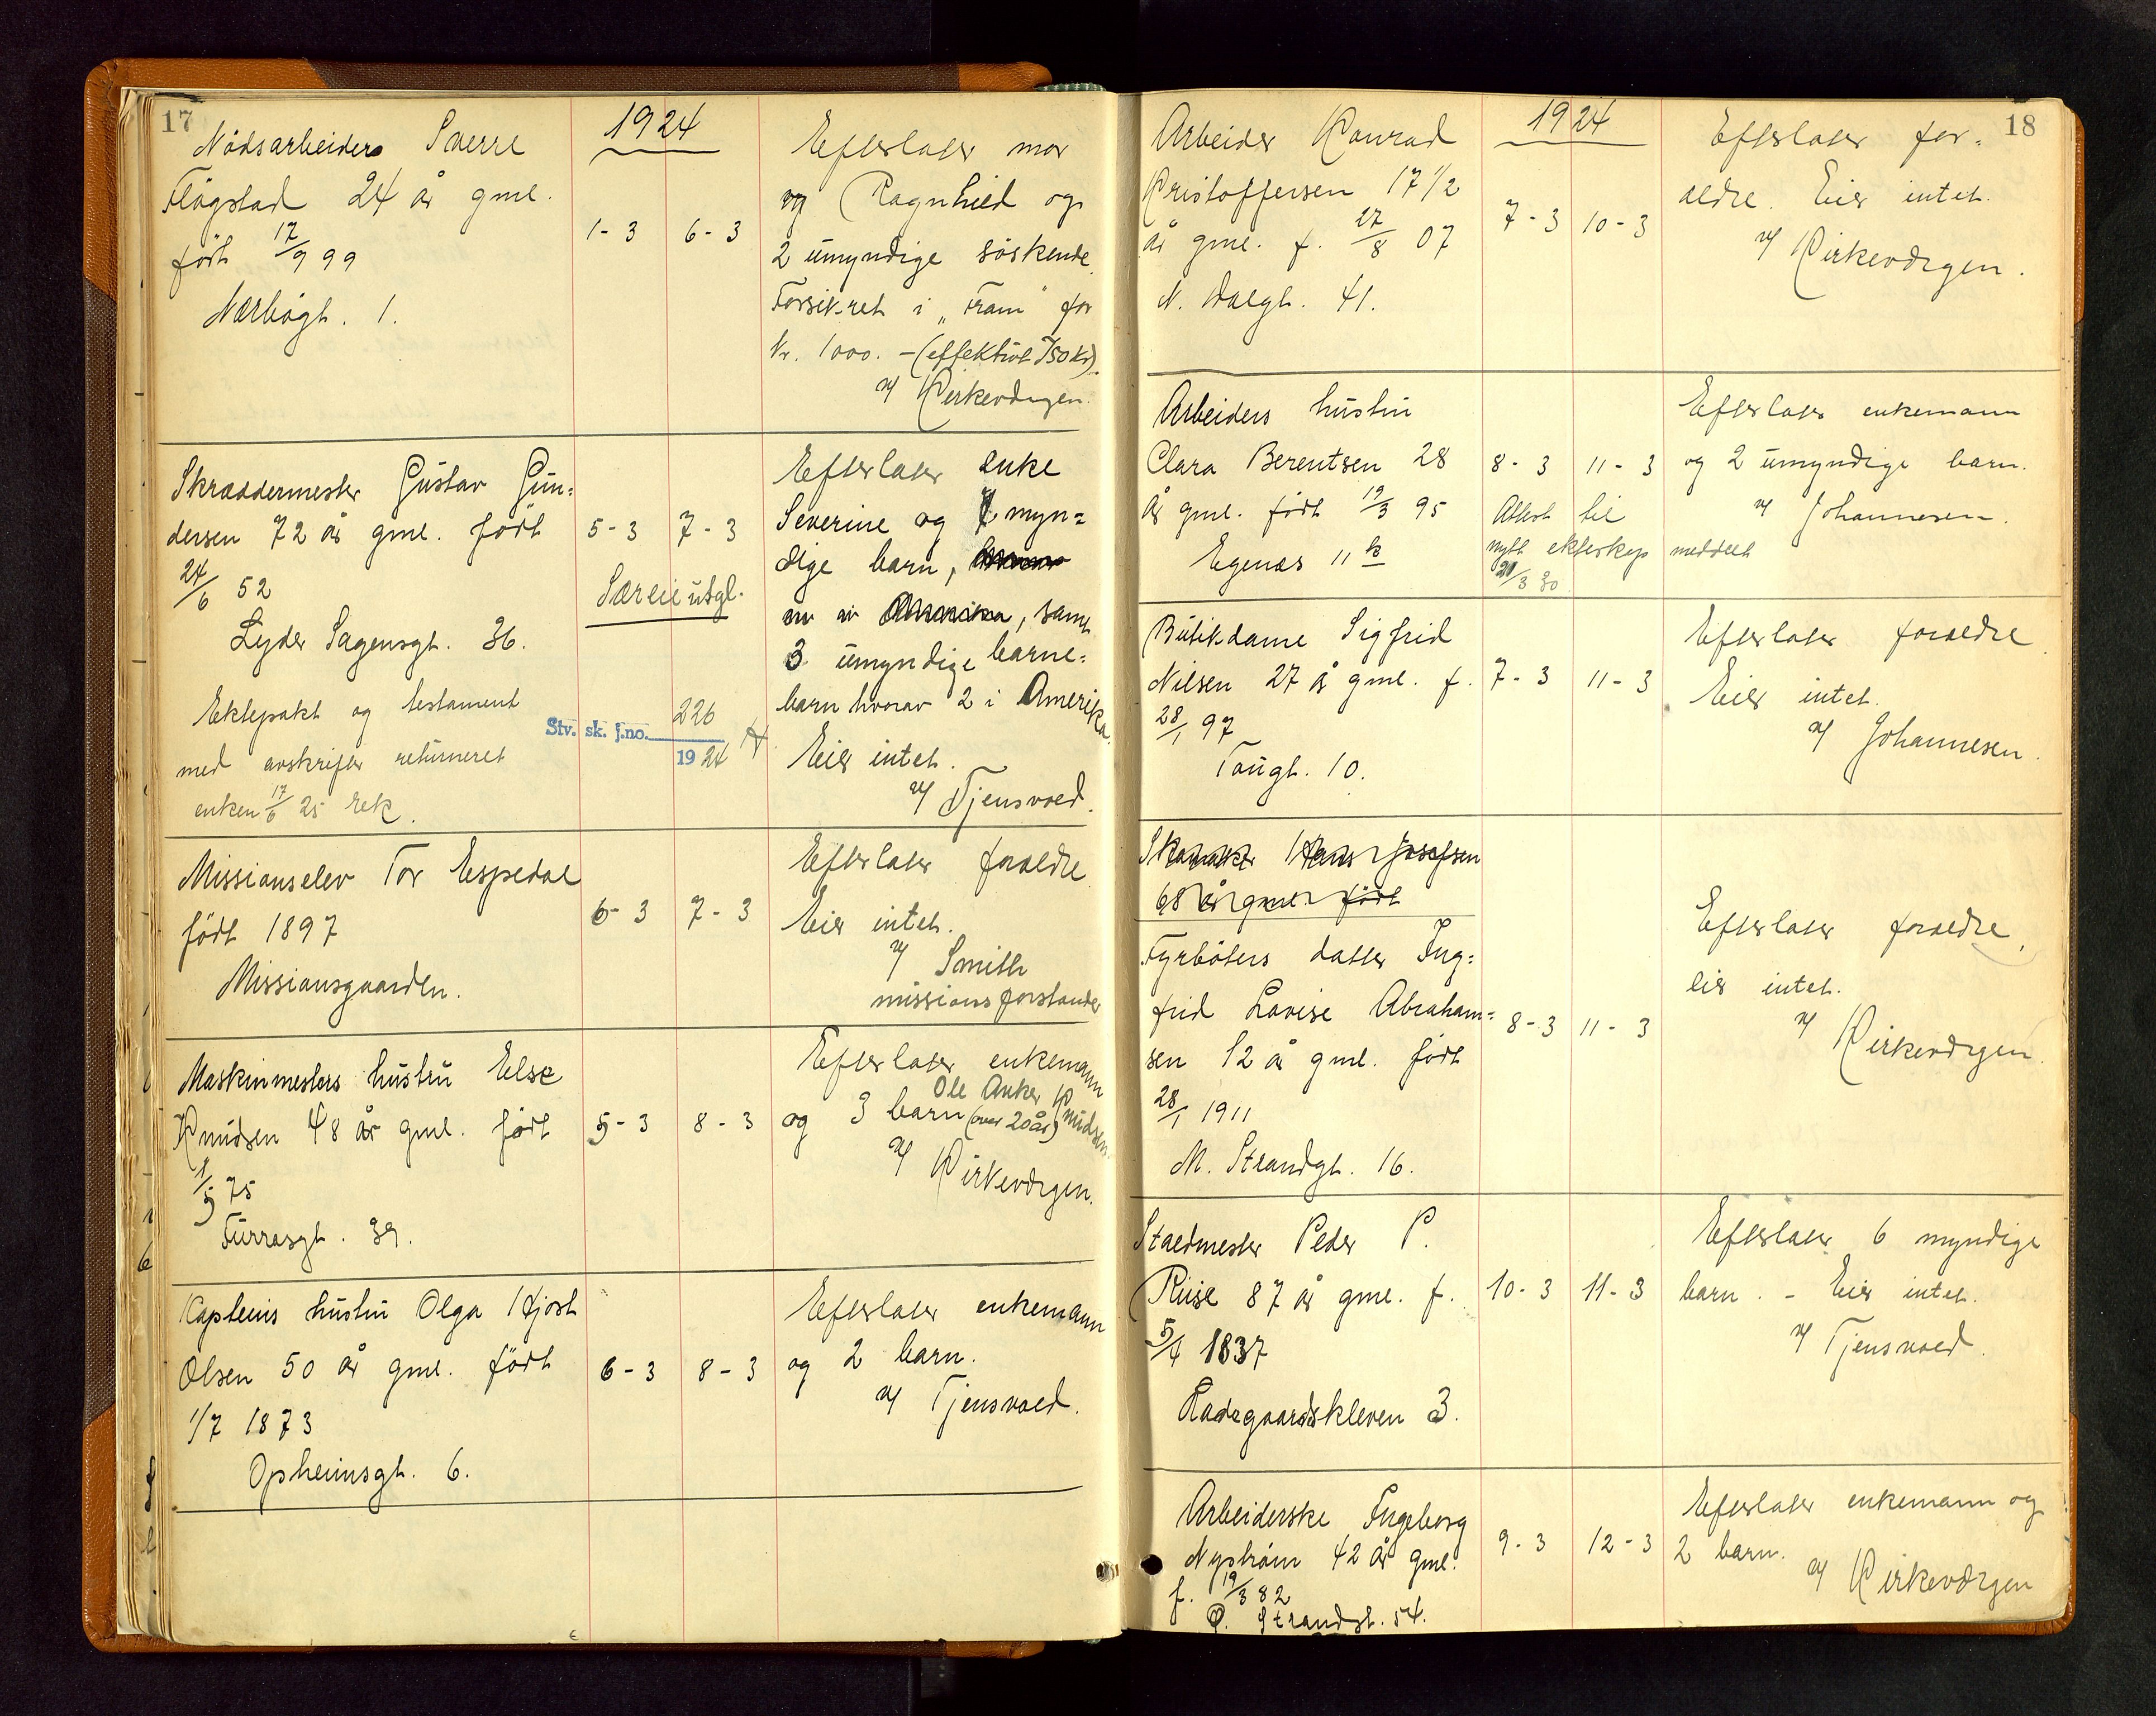 17
1924
Nødsarbeiders Sverre
Fløgstad 24 år gml.
født 17/9 99
Nærbøgt. 1.
1-3 6-3
Efterlater mor
og Ragnhild og
2 umyndige søskende.
Forsikret i "Fram" for
Kr. 1000.- (effektivt 750 Kr).
v/ Kirkevergen.
Skræddermester Gustav Gun=
dersen 72 år gml. født
24/6 52
Lyder Sagensgt. 36.
Ektepakt og testament
med avskrifter returneret
enken 17/6 25 rek.
5-3 7-3
Særeie utgl.
Stv. sk. j.no. 226
1924
Efterlater enke
Severine og 7 myn=
dige barn,
av Amerika, samt
3 umyndige barne=
barn hvorav 2 i Amerika.
Eier intet.
v/ Tjensvold.
Missionselev Tor Espedal
født 1897
Missionsgaarden.
6-3 7-3
Efterlater forældre
Eier intet.
v/ Smith
missionsforstander
Maskinmesters hustru Else
Knudsen 48 år gml. født
1/5 75
Furrasgt. 39.
5-3 8-3
Efterlater enkemann
Ole Anker Knudsen
og 3 barn (over 20 år)
v/ Kirkevergen.
Kapteins hustru Olga Hjort
Olsen 50 år gml. født
1/7 1873
Opheimsgt. 6.
6-3 8-3
Efterlater enkemann
og 2 barn.
v/ Tjensvold.
18
1924
Arbeider Konrad
Kristoffersen 17 1/2
år gml. f. 27/8 07
N. Dalgt. 41.
7-3 10-3
Efterlater for=
ældre. Eier intet.
v/ Kirkevergen.
Arbeiders hustru
Clara Berentsen 28
år gml. født 19/3 95
Egenes 11 b
8-3 11-3
Attest til
nytt ekteskap meddelt
21/3 30
Efterlater enkemann
og 2 umyndige barn.
v/ Johannesen.
Butikdame Sigfrid
Nilsen 27 år gml. f.
28/1 97
Taugt. 10.
7-3 11-3
Efterlater forældre.
Eier intet.
v/ Johannesen.
Skomaker Hans Josefsen
68 år gml. født
Fyrbøters datter Ing=
frid Lovise Abraham=
sen 12 år gml. født
28/1 1911
M. Strandgt. 16.
8-3 11-3
Efterlater forældre,
eier intet.
v/ Kirkevergen.
Staldmester Peder P.
Riise 87 år gml. f.
5/4 1837
Ladegaardskleven 3.
10-3 11-3
Efterlater 6 myndige
barn. - Eier intet.
v/ Tjensvold.
Arbeiderske Ingeborg
Nystrøm 42 år gml.
f. 19/3 82
Ø. Strandgt. 54.
9-3 12-3
Efterlater enkemann og
2 barn.
v/ Kirkevergen